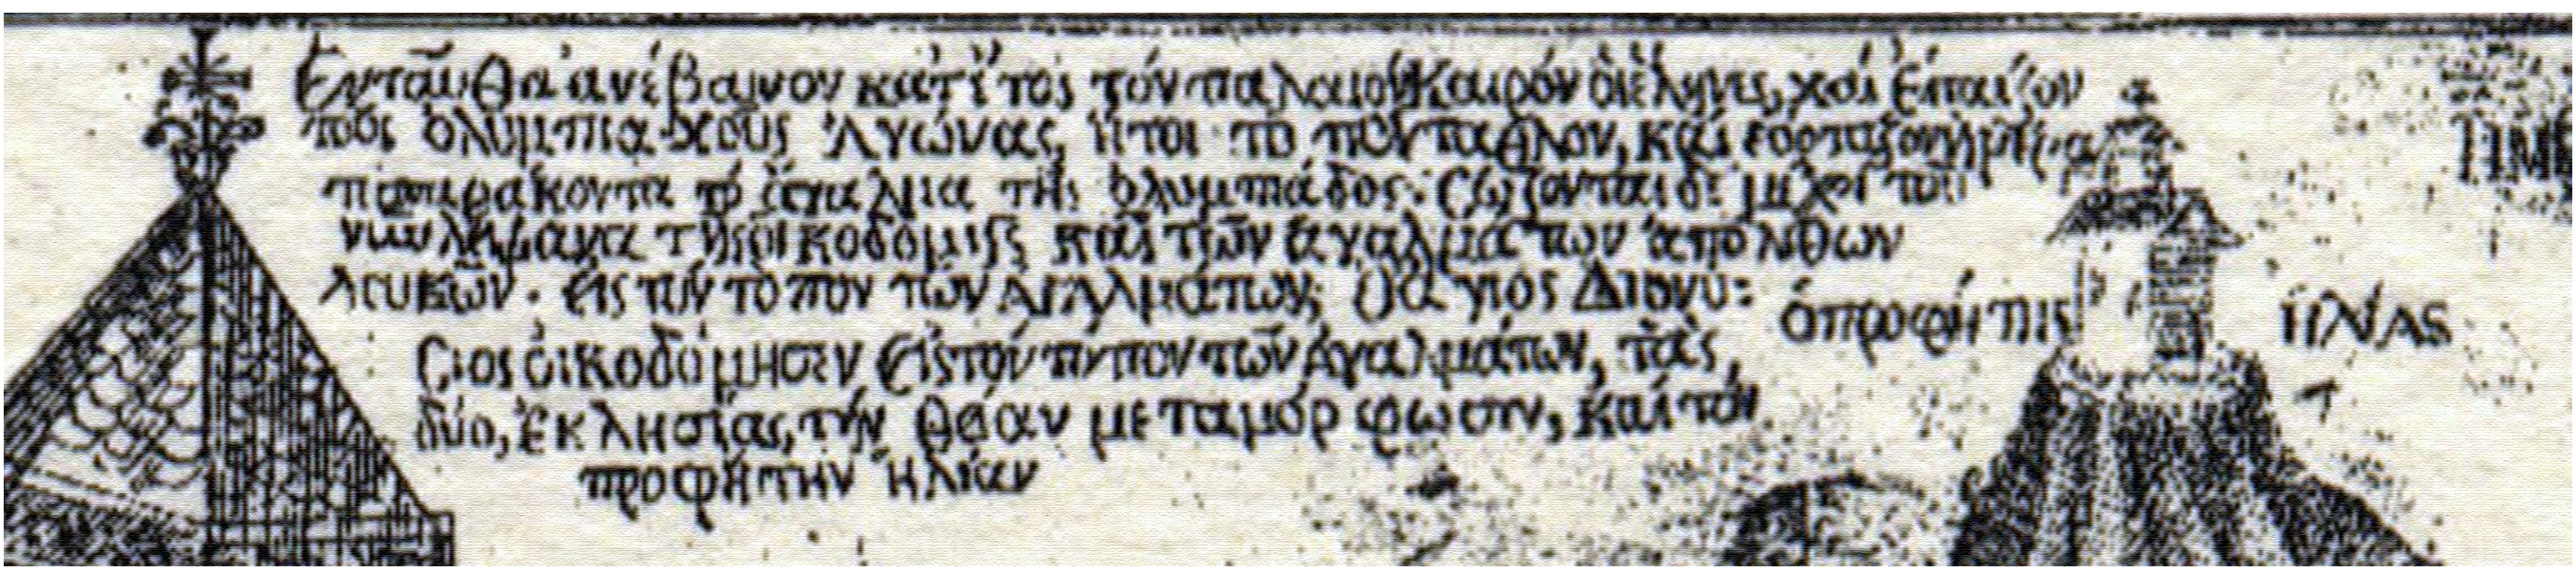 Ενταῦθα ἀνέβαινον κατ' ἔτος τόν παλαιόν καιρόν ὁι ἕληνες, χαί ἔπαιζον
τοὺς ὀλυμπιαχοὺς Ἀγώνας, ἤτοι τὸ πένταθλον, καί
τεσσεράκοντα τῆς ὀλυμπιάδος: σώζονται δέ μέχρι τοῦ
νυν λείψανα τῆς οἰκοδομῆς καί τῶν ἀγαλμάτων ἀπὸ λίθων
λευκῶν. εἰς τὸν τόπον τῶν ἀγαλμάτων, Ὁ ἅγιος Διονύ:
σιος ὀικοδόμησεν εἰς τόν τῶν ἀγαλμάτων, τὰς
δύο, ἐκλησίας, τὴν θείαν μεταμόρφωσιν, καί τόν
προφήτην ἠλίαν
ὁ προφήτης ἠλίας